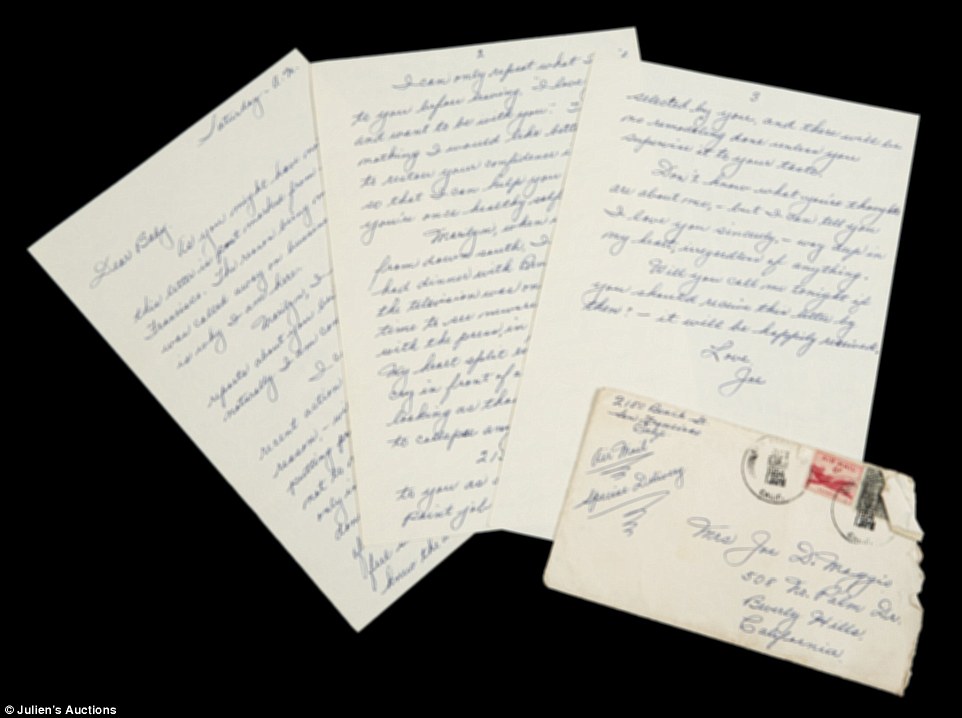 Saturday - A.M.
Dear Baby,
As you might have no
this letter is post marked from
Francisco. The reason being
was called away on business
is why I am here.
Marilyn, I
reports about you
naturally I am con
I
recent action
reason, - w
putting
not be
only
don
of
feel
know the
2
I can only repeat what I
to you before leaving. "I love
and want to be with you." I
nothing I would like bett
to restore your confidence
so that I can help you
you're once healthy self
Marilyn, when
from down south, I
had dinner with
the television was on
time to see
with the press, in
My heart split
cry in front of
looking as tho
to collapse any
21
to you as
Paint job
3
selected by you, and there will be
no remodeling done unless you
supervise it to your taste.
Don't know what you're thoughts
are about me, - but I can tell you
I love you sincerely, - way deep in
my heart, irregardless of anything.
Will you call me tonight if
you should receive this letter by
then? - it will be happily received.
Love,
Joe
2150 Beach St
San Francisco
Calif
Air Mail
Special Delivery
AIR MAIL
CALIF.
Mrs Joe Di Maggio
508 No. Palm Dr.
Beverly Hills,
California
© Julien's Auctions